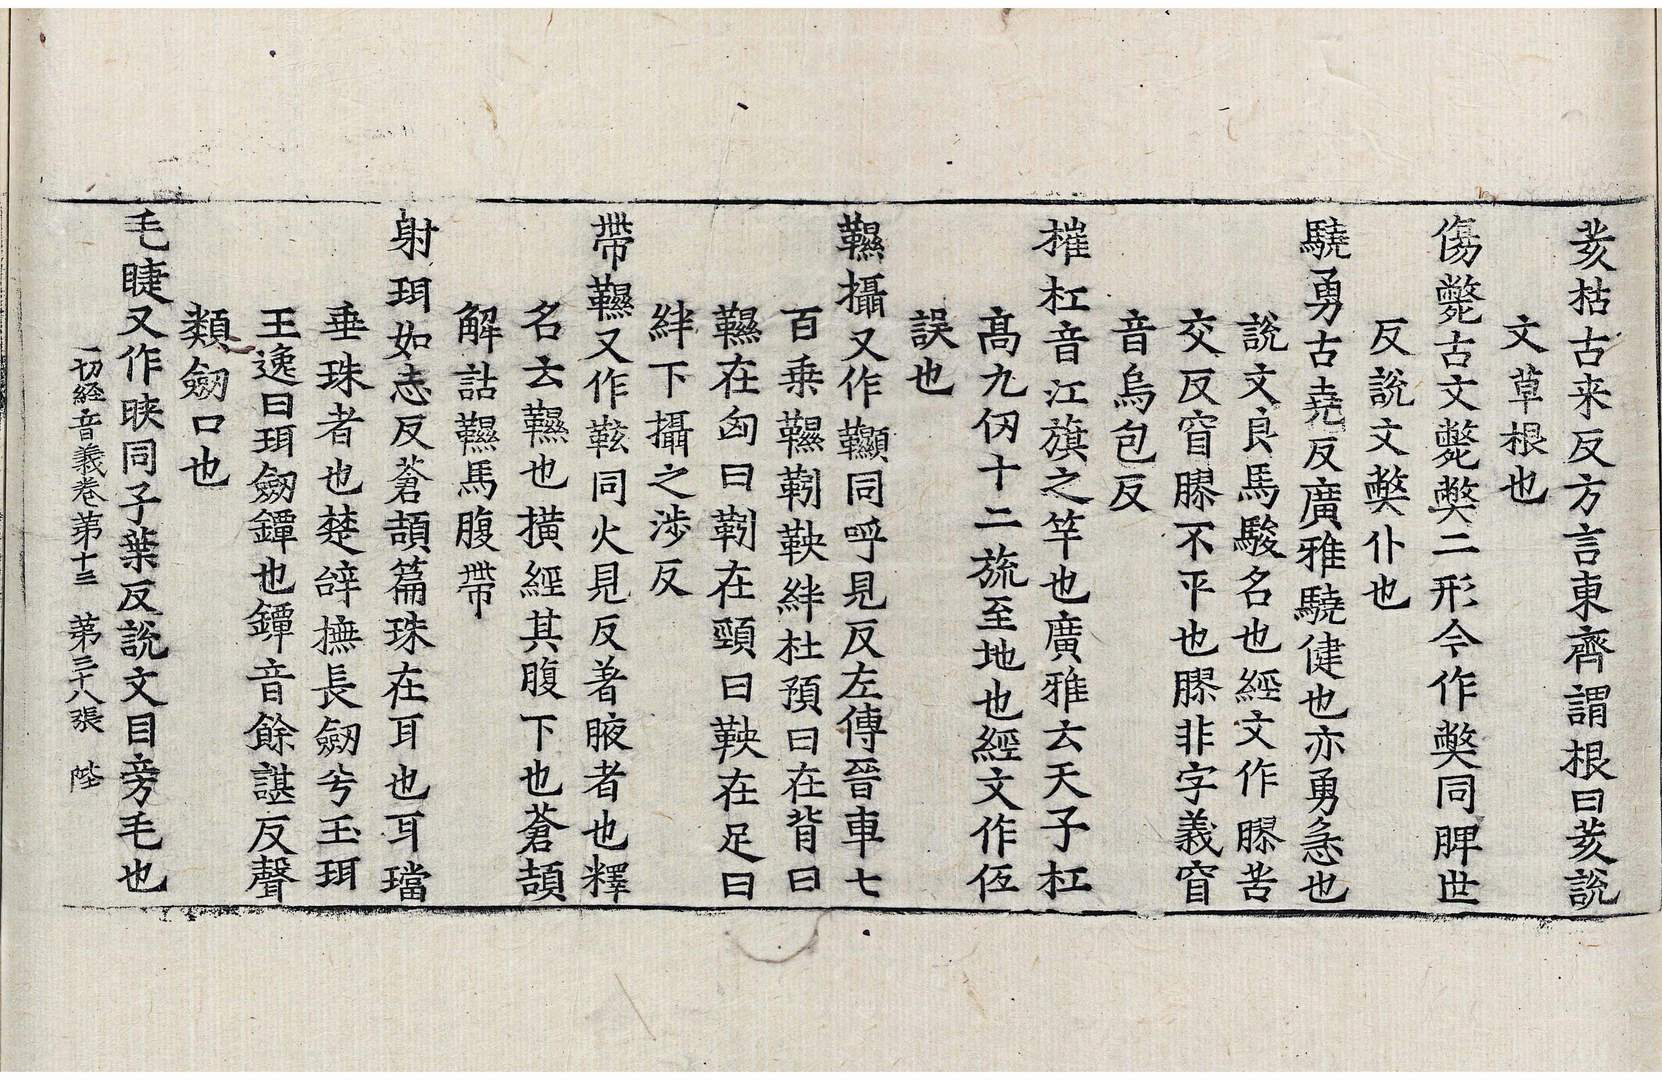 荄枯古来反方言東齊謂根曰荄說
文草根也
傷斃古文斃獘二形今作獘同脾世
反說文獘仆也
驍勇古堯反廣雅驍健也亦勇急也
說文良馬駿名也經文作膠苦
交反窅膠不平也膠非字義窅
音烏包反
摧杠音江旗之竿也廣雅云天子杠
高九仞十二旒至地也經文作伍
誤也
韅攝又作韅同呼見反左傳晉車七
百乗韅靷鞅絆杜預曰在背曰
韅在匈曰靷在頸曰鞅在足曰
絆下攝之涉反
帶韅又作䩙同火見反著腋者也釋
名云韅也横經其腹下也蒼頡
解詁韅馬腹帶
射珥如志反蒼頡篇珠在耳也耳璫
垂珠者也楚辝撫長劒兮玉珥
王逸曰珥劒鐔也鐔音餘諶反聲
類劒口也
毛睫又作䀹同子葉反說文目旁毛也
一切經音義卷第十三　第三十八張　陛